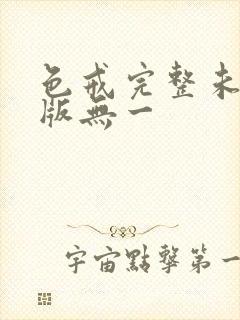 色戒完整未
版無一
宇宙點擊第一